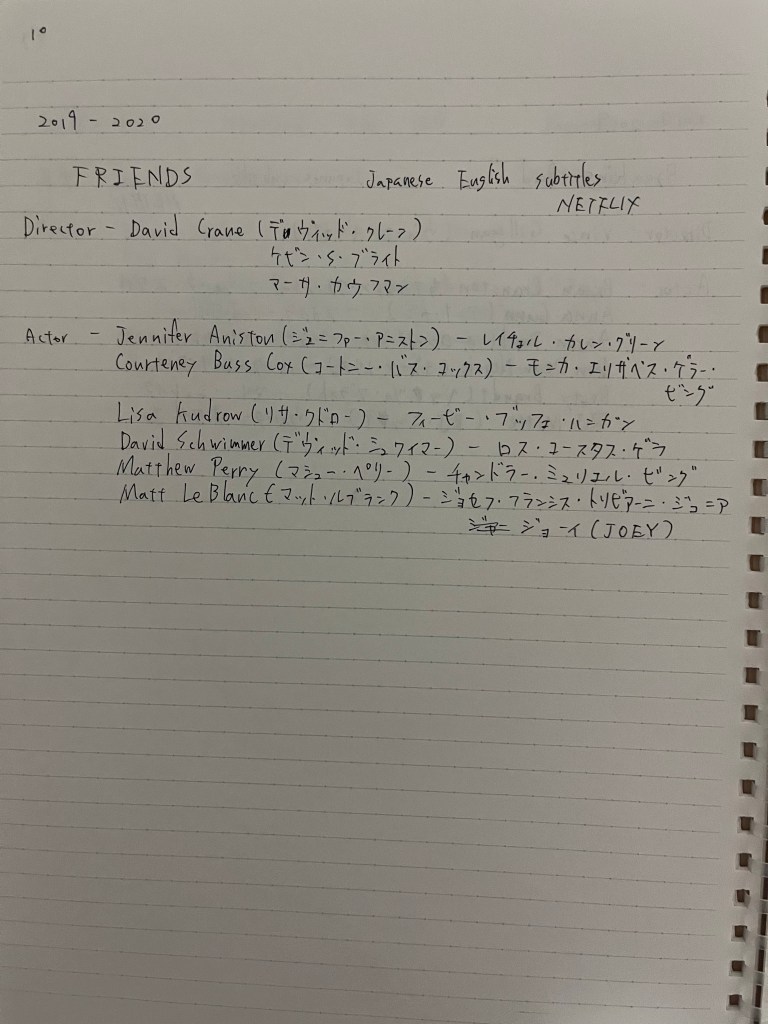 10
2019 - 2020
FRIENDS Japanese English subtitles
NETFLIX
Director - David Crane (デヴィッド・クレーン)
ケビン・S・ブライト
マーサ・カウフマン
Actor - Jennifer Aniston (ジェニファー・アニストン) - レイチェル・カレン・グリーン
Courteney Bass Cox (コートニー・バス・コックス) - モニカ・エリザベス・ゲラー・
ビング
Lisa Kudrow (リサ・クドロー) - フィービー・ブッフェ・ハニガン
David Schwimmer (デヴィッド・シュワイマー) - ロス・ユースタス・ゲラ
Matthew Perry (マシュー・ペリー) - チャンドラー・ミュリエル・ビング
Matt LeBlanc (マット・ルブランク) - ジョセフ・フランシス・トリビアーニ・ジュニア
ジョーイ (JOEY)